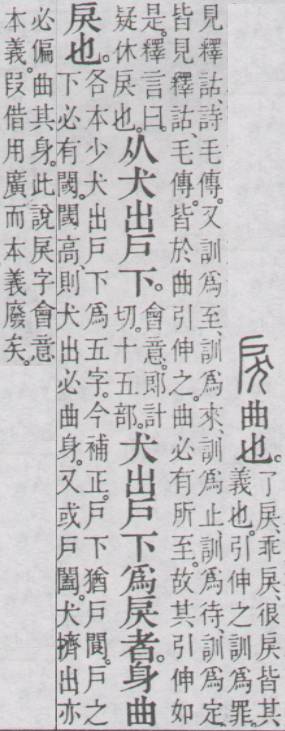 戾曲也。
了戾、乖戾、很戾皆其
義也。引伸之訓爲罪。
見釋詁、詩毛傳。又訓爲至、訓爲來、訓爲止、訓爲待、訓爲定、
皆見釋詁、毛傳。皆於曲引伸之。曲必有所至。故其引伸如
是。釋言曰。
疑休戾也。
从犬出戶下。
會意。郎計
切。十五部。
犬出戶下爲戾者。身曲
戾也。
各本少犬出戶下爲五字。今補正。戶下猶戶閒。戶之
下必有閾。閾高。則犬出必曲身。又或戶闔。犬擠出亦
必偏曲其身。此說戾字會意
本義。叚借用廣而本義廢矣。